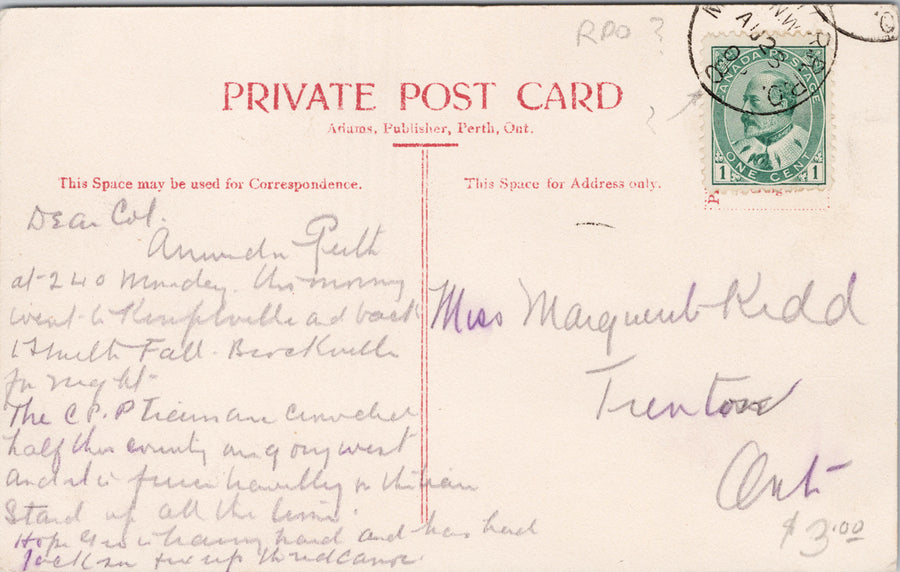 RPO ?
AU 23
R.P.O.
CANADA POSTAGE
1 ONE CENT 1
PRIVATE POST CARD
Adams, Publisher, Perth, Ont.
This Space may be used for Correspondence.
This Space for Address only.
Dear Col.
Perth
at 240 Monday. this morning
went to Kemptville and back
Smith Fall. Brockville
for night
The C P. P Trains are crowded
half this county going west
and it is travelling in the
Stand up all the time.
Hope is having hand and has had
Jackson fix up the red canoe
Miss Marguerite Kidd
Trenton
Ont
$3.00